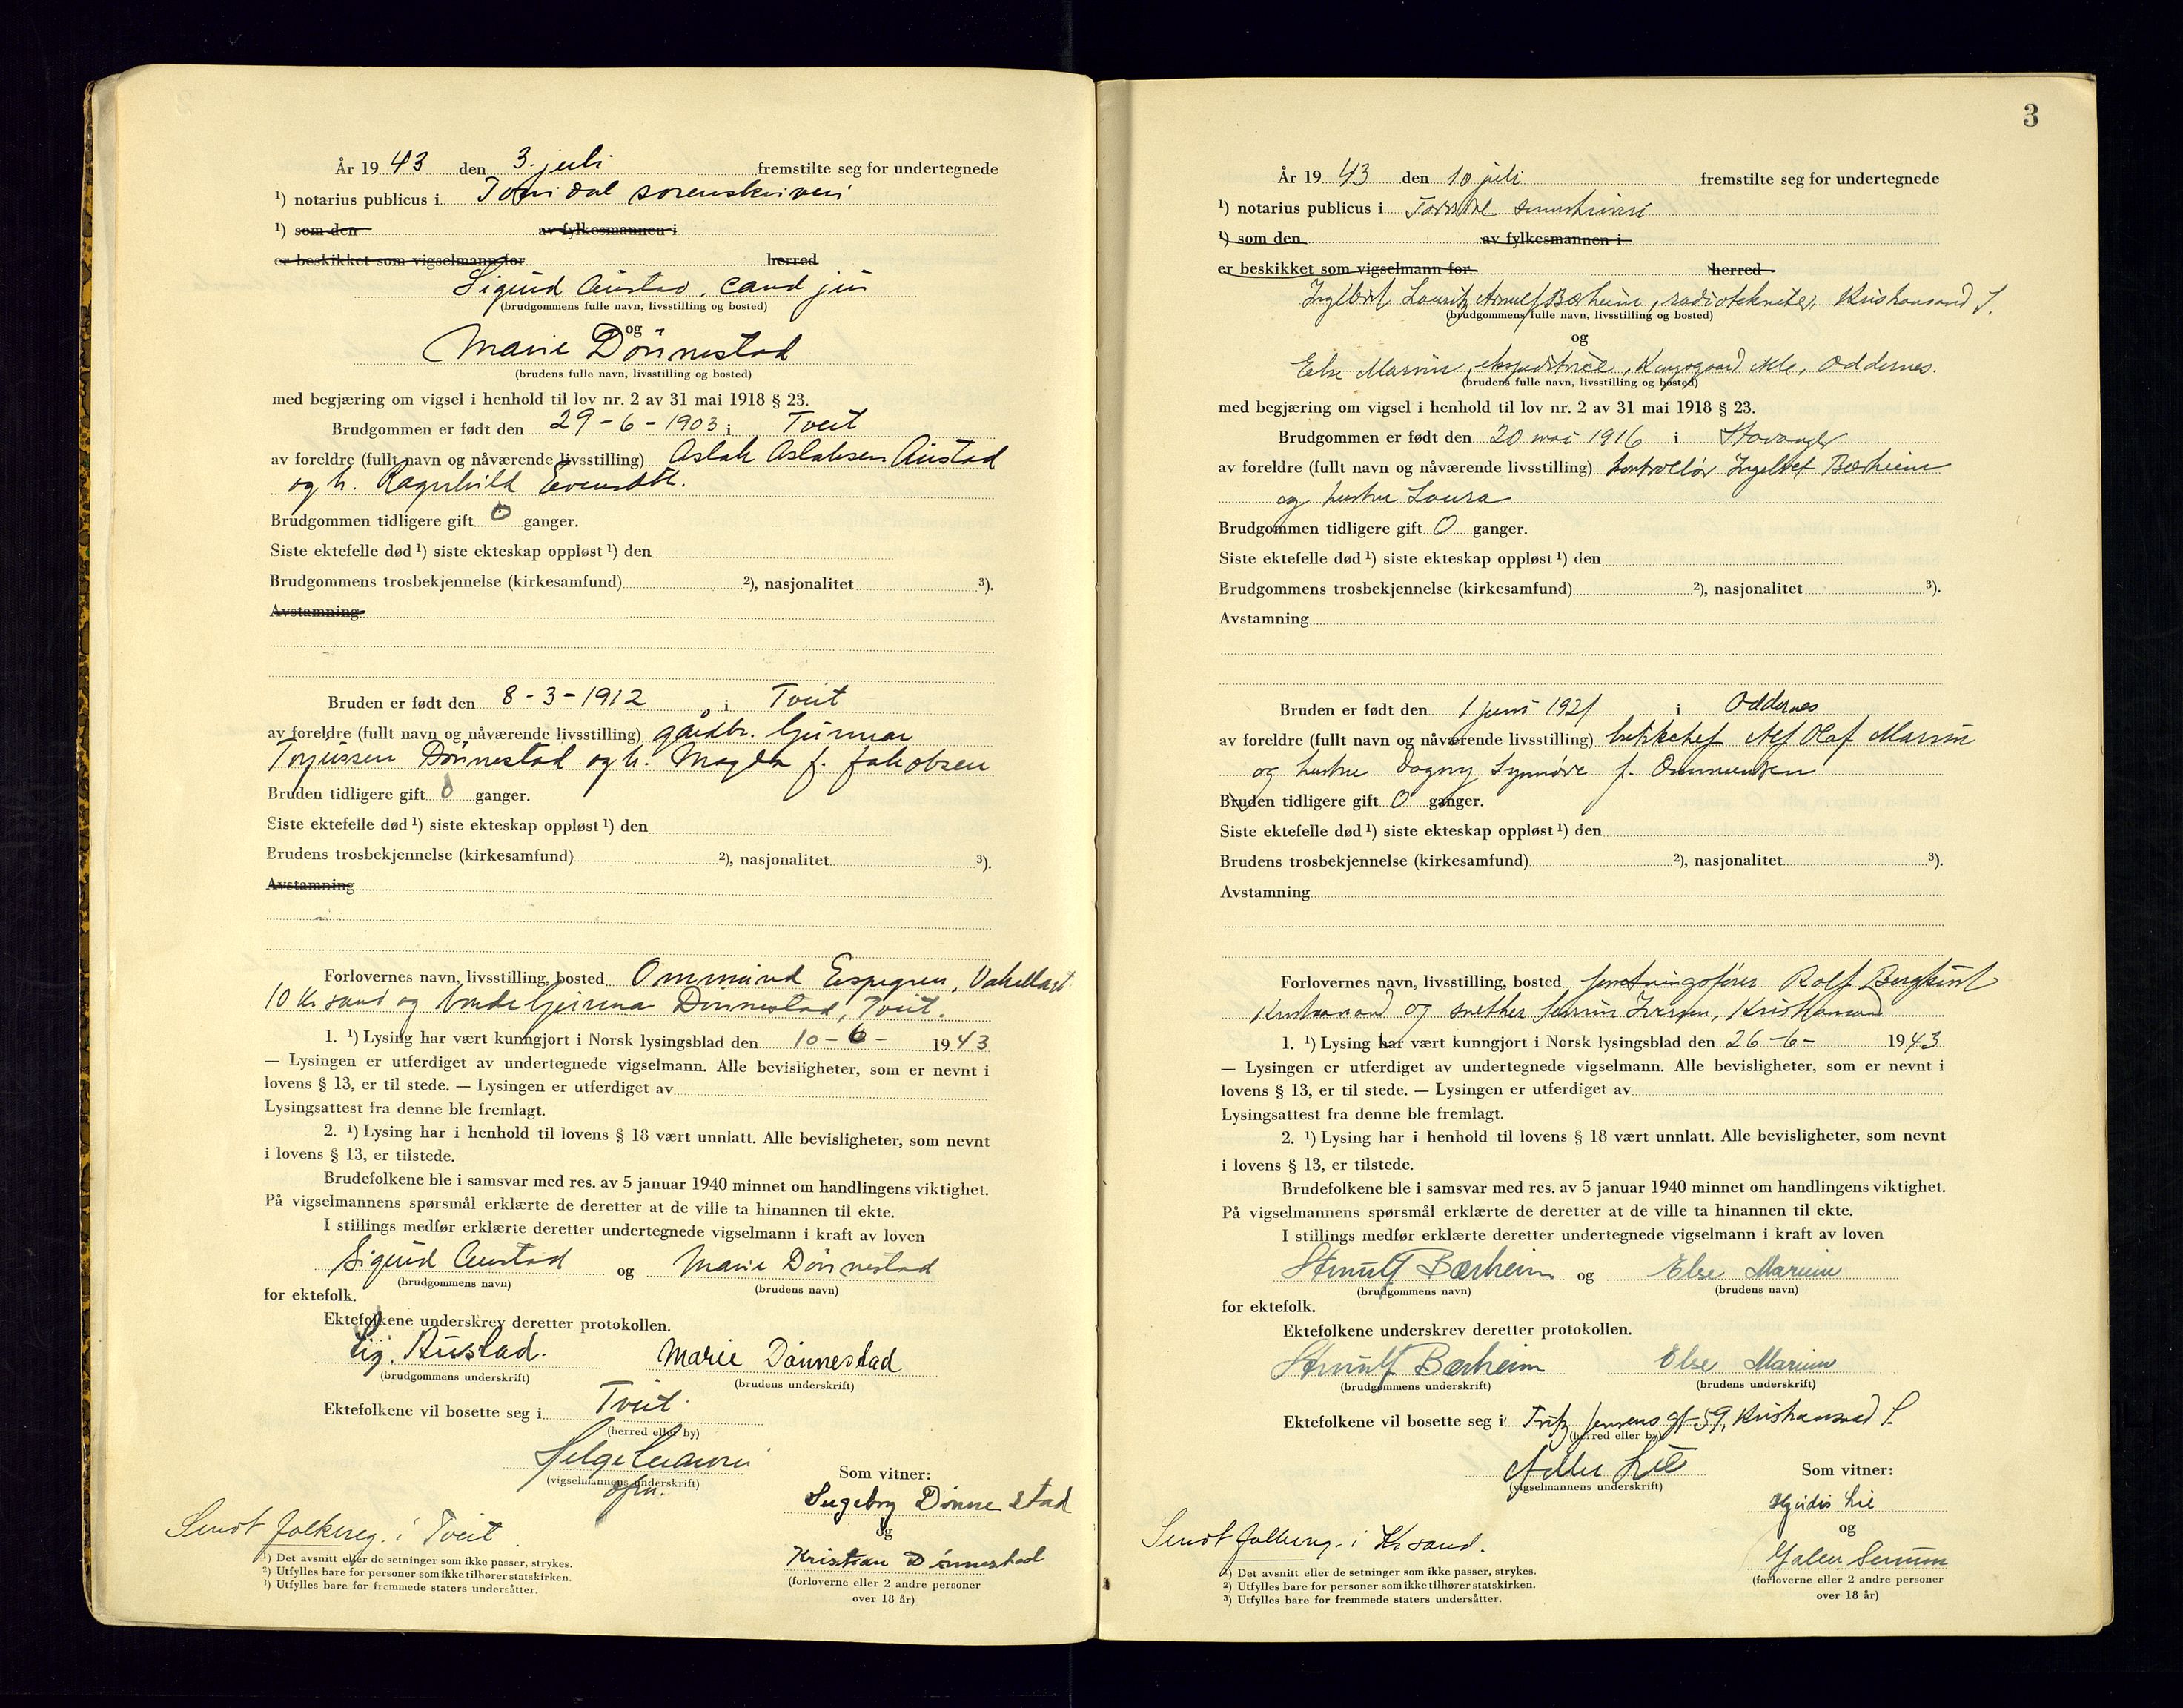 År 19 43 den 3. juli fremstilte seg for undertegnede
¹) notarius publicus i Torridal sorenskriveri
¹) som den av fylkesmannen i
er beskikket som vigselmann for herred
Sigurd Austad, cand jur
(brudgommens fulle navn, livsstilling og bosted)
og
Marie Dönnestad
(brudens fulle navn, livsstilling og bosted)
med begjæring om vigsel i henhold til lov nr. 2 av 31 mai 1918 § 23.
Brudgommen er født den 29-6-1903 i Tveit
av foreldre (fullt navn og nåværende livsstilling) Aslak Aslaksen Austad
og h. Ragnhild Evensdtr.
Brudgommen tidligere gift 0 ganger.
Siste ektefelle død ¹) siste ekteskap oppløst ¹) den
Brudgommens trosbekjennelse (kirkesamfund) ²), nasjonalitet ³).
Avstamning
Bruden er født den 8-3-1912, i Tveit
av foreldre (fullt navn og nåværende livsstilling) gårdbr. Gunnar
Torjussen Dönnestad og h. Magda f. Jakobsen
Bruden tidligere gift 0 ganger.
Siste ektefelle død ¹) siste ekteskap oppløst ¹) den
Brudens trosbekjennelse (kirkesamfund) ²), nasjonalitet ³).
Avstamning
Forlovernes navn, livsstilling, bosted Ommund Espegren,
10 Kr sand og Dönnestad, Tveit.
1. ¹) Lysing har vært kunngjort i Norsk lysingsblad den 10-6- 1943
— Lysingen er utferdiget av undertegnede vigselmann. Alle bevisligheter, som er nevnt i
lovens § 13, er til stede. — Lysingen er utferdiget av
Lysingsattest fra denne ble fremlagt.
2. ¹) Lysing har i henhold til lovens § 18 vært unnlatt. Alle bevisligheter, som nevnt
i lovens § 13, er tilstede.
Brudefolkene ble i samsvar med res. av 5 januar 1940 minnet om handlingens viktighet.
På vigselmannens spørsmål erklærte de deretter at de ville ta hinannen til ekte.
I stillings medfør erklærte deretter undertegnede vigselmann i kraft av loven
Sigurd Austad og Marie Dönnestad
(brudgommens navn) (brudens navn)
for ektefolk.
Ektefolkene underskrev deretter protokollen.
Sig. Austad. Marie Dönnestad
(brudgommens underskrift) (brudens underskrift)
Ektefolkene vil bosette seg i Tveit.
(herred eller by)
Helge
(vigselmannens underskrift)
Som vitner:
Ingebrg Dönnestad
og
Kristian Dönnestad
(forloverne eller 2 andre personer
over 18 år)
Sendt folkereg. i Tveit.
¹) Det avsnitt eller de setninger som ikke passer, strykes.
²) Utfylles bare for personer som ikke tilhører statskirken.
³) Utfylles bare for fremmede staters undersåtter.
3
År 19 43 den 10 juli fremstilte seg for undertegnede
¹) notarius publicus i Torridal
¹) som den av fylkesmannen i
er beskikket som vigselmann for herred
Ingelbrt Lauritz Arnulf Bærheim, radiotekniker, Kristiansand S.
(brudgommens fulle navn, livsstilling og bosted)
og
Else ekspeditrice, Oddernes.
(brudens fulle navn, livsstilling og bosted)
med begjæring om vigsel i henhold til lov nr. 2 av 31 mai 1918 § 23.
Brudgommen er født den 20 mai 1916 i Stavanger
av foreldre (fullt navn og nåværende livsstilling) kontrollør Bærheim
og hustru Laura
Brudgommen tidligere gift 0 ganger.
Siste ektefelle død ¹) siste ekteskap oppløst ¹) den
Brudgommens trosbekjennelse (kirkesamfund) ²), nasjonalitet ³).
Avstamning
Bruden er født den 1 juni 1921 i Oddernes
av foreldre (fullt navn og nåværende livsstilling) Alf Olaf
og hustru Dagny Synnöve f. Ommundsen
Bruden tidligere gift 0 ganger.
Siste ektefelle død ¹) siste ekteskap oppløst ¹) den
Brudens trosbekjennelse (kirkesamfund) ²), nasjonalitet ³).
Avstamning
Forlovernes navn, livsstilling, bosted forretningsfører Rolf
Kristiansand og Kristiansand
1. ¹) Lysing har vært kunngjort i Norsk lysingsblad den 26-6- 1943
— Lysingen er utferdiget av undertegnede vigselmann. Alle bevisligheter, som er nevnt i
lovens § 13, er til stede. — Lysingen er utferdiget av
Lysingsattest fra denne ble fremlagt.
2. ¹) Lysing har i henhold til lovens § 18 vært unnlatt. Alle bevisligheter, som nevnt
i lovens § 13, er tilstede.
Brudefolkene ble i samsvar med res. av 5 januar 1940 minnet om handlingens viktighet.
På vigselmannens spørsmål erklærte de deretter at de ville ta hinannen til ekte.
I stillings medfør erklærte deretter undertegnede vigselmann i kraft av loven
Arnulf Bærheim og Else
(brudgommens navn) (brudens navn)
for ektefolk.
Ektefolkene underskrev deretter protokollen.
Arnulf Bærheim Else
(brudgommens underskrift) (brudens underskrift)
Ektefolkene vil bosette seg i Fritz Jensens gt 59, Kristiansand S.
(herred eller by)
Lie
(vigselmannens underskrift)
Som vitner:
Hjördis Lie
og
(forloverne eller 2 andre personer
over 18 år)
Sendt folkereg. i Kr.sand.
¹) Det avsnitt eller de setninger som ikke passer, strykes.
²) Utfylles bare for personer som ikke tilhører statskirken.
³) Utfylles bare for fremmede staters undersåtter.